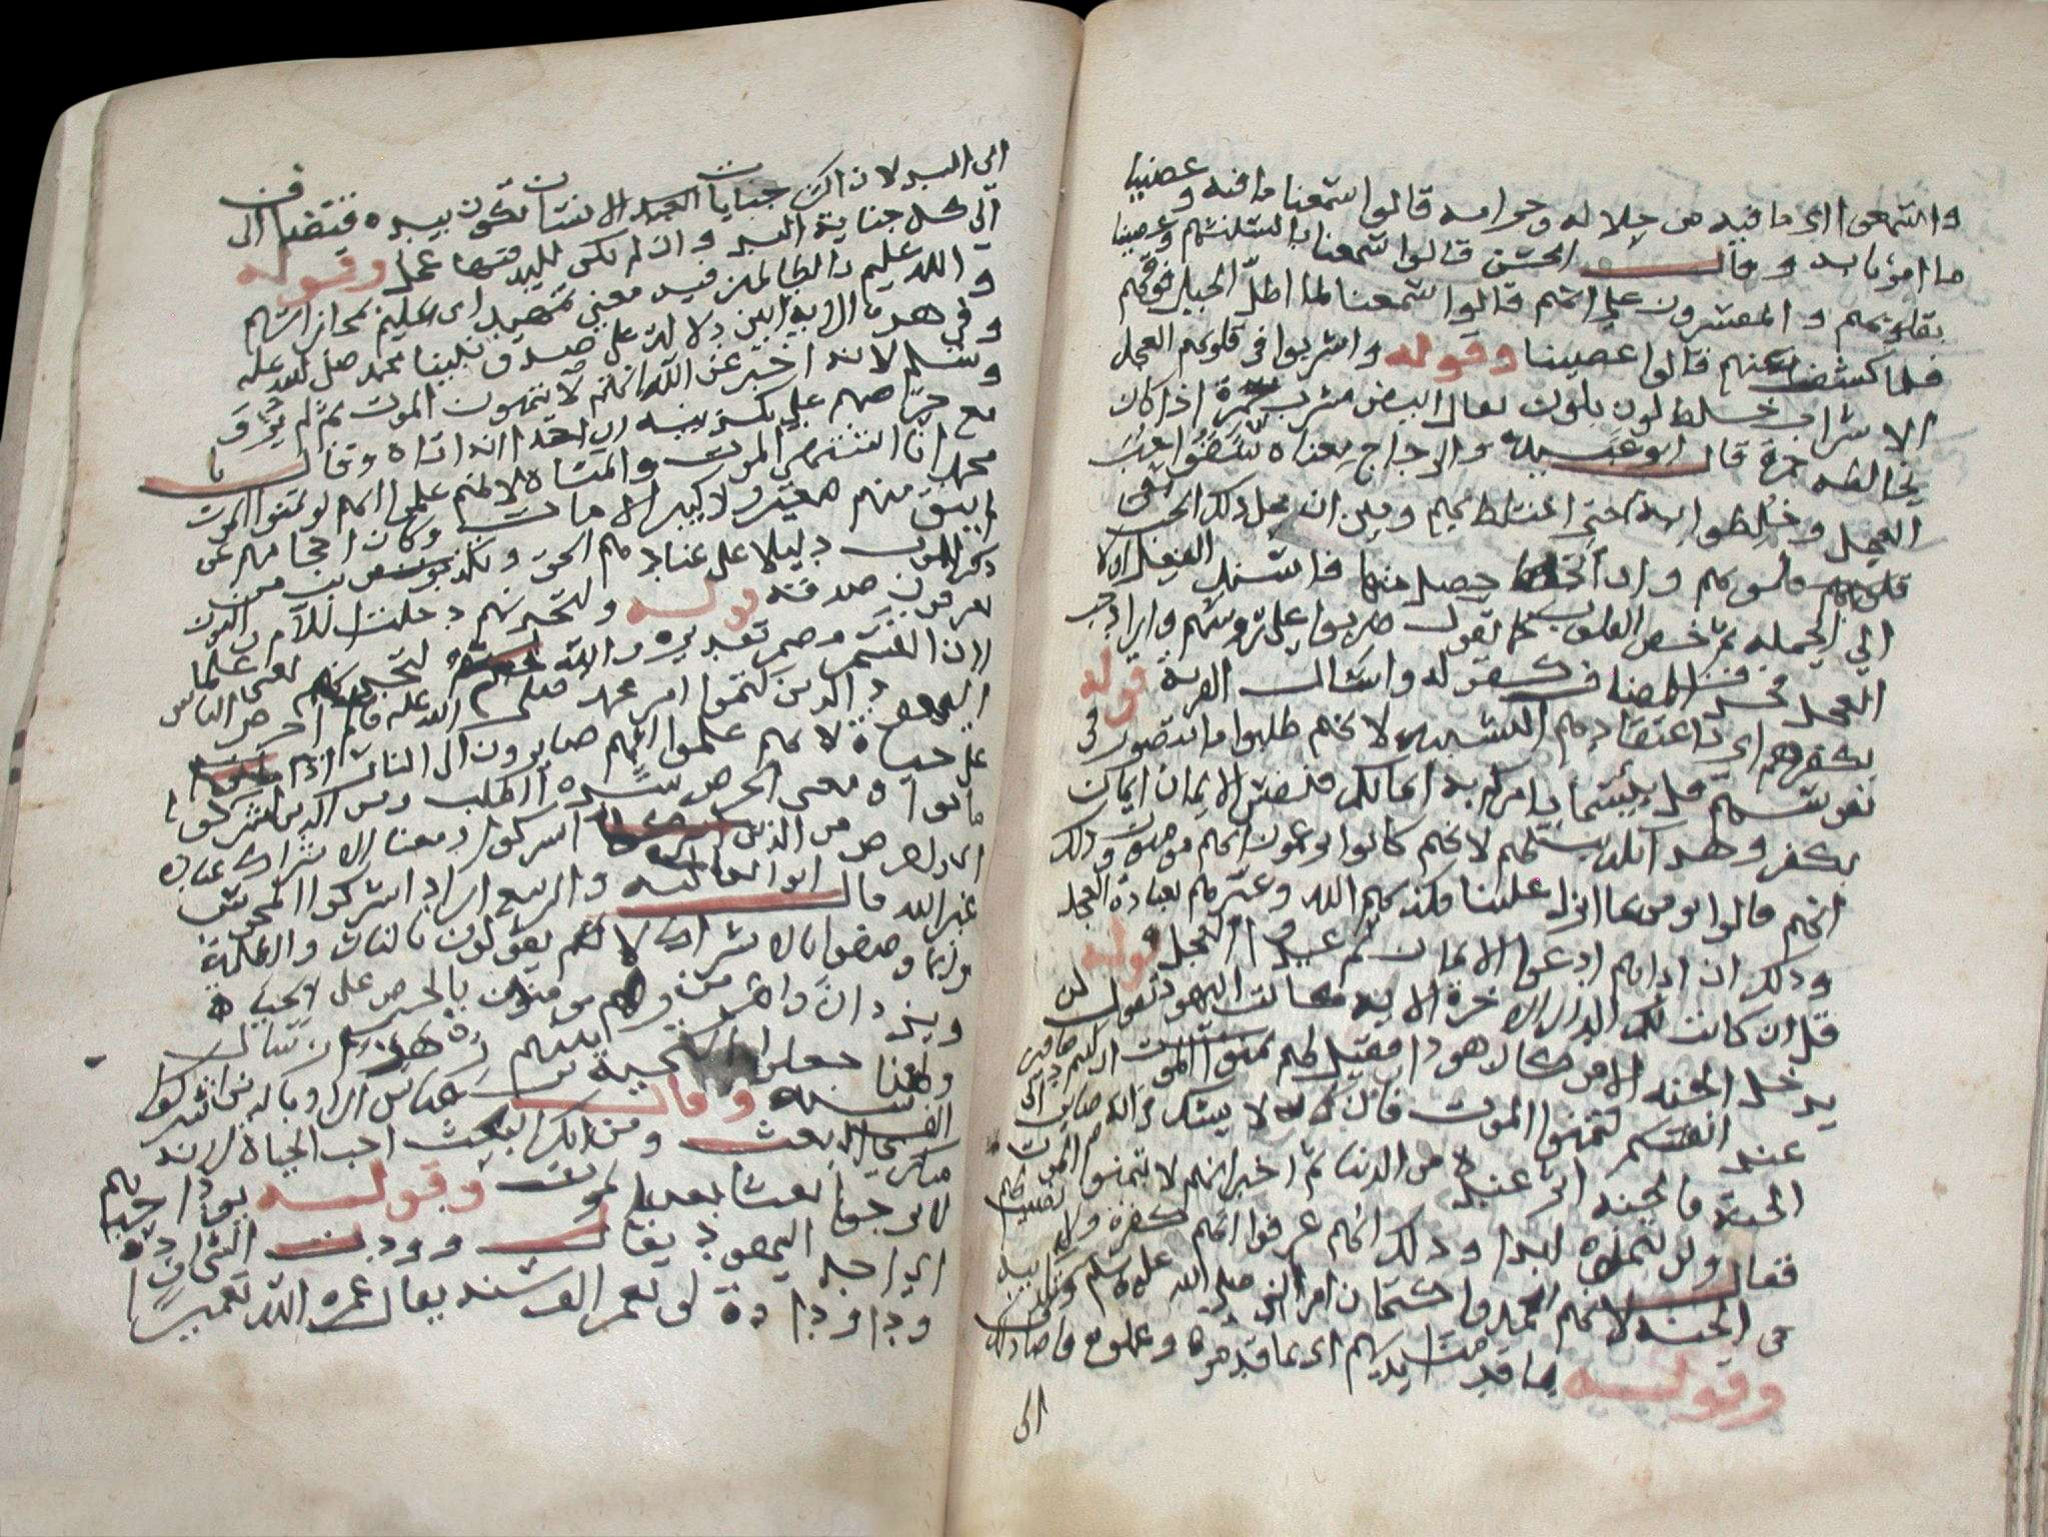 واسمعوا اي ما فيه من حلاله وحرامه قالوا سمعنا ما فيه وعصينا
ما امرنا به وقال الحسن قالوا سمعنا بالسنتهم وعصينا
بقلوبهم والمفسرون علي انهم قالوا سمعنا لما اطل الجبل فوقهم
فلما كشف عنهم قالوا عصينا وقوله واشربوا في قلوبهم العجل
الاشراب خلط لون بلون يقال ابيض مشرب حمرة اذا كان
يخالطه حمرة قال ابو عبيدة والزجاج معناه سقوا حب
العجل وخلطوا به حتي اختلط بهم
الي الجمله ثم خص القلوب كما تقول ضربوا علي رؤوسهم واراد حب
العجل فحذف المضاف كقوله واسال القرية قوله
بكفرهم اي باعتقادهم التشبيه لانهم طلبوا ما يتصور في
نفوسهم قل بئسما يامركم به ايمانكم فبئس الايمان ايمان
بكفر وهذا تكذيب لهم لانهم كانوا يزعمون انهم مومنون وذلك
انهم قالوا نومن بما انزل علينا فكذبهم الله وعيرهم بعبادة العجل
وذلك ان اباهم ادعوا الايمان ثم عبدوا العجل قوله
قل ان كانت لكم الدار الاخرة الاية كانت اليهود تقول لن
يدخل الجنه الا من كان هودا فقيل لهم تمنوا الموت ان كنتم صادقين
عند انفسكم فتمنوا الموت فان من لا يشك في انه صاير الي
الجنة فالجنه اثر عنده من الدنيا ثم اخبر انهم لا يتمنون الموت
فقال ولن يتمنوه ابدا وذلك انهم عرفوا انهم كفرة ولا نصيب لهم
في الجنه لانهم تعمدوا كتمان امر النبي صلي الله عليه وسلم وتكذيبه
وقوله بما قدمت ايديهم اي بما قدموه وعملوه فاضاف ذلك
الي
الي اليد لان اكثر جنايات الانسان تكون بيده فتضاف
الي كل جناية اليد وان لم يكن لليد فيها عمل وقوله
والله عليم بالظالمين فيه معني تهديد اي عليم بمجازاتهم
وفي هذه الاية ابين دلالة علي صدق نبينا محمد صلي الله عليه
وسلم لانه اخبر عن الله انهم لا يتمنون الموت ثم لم يرو
مع حرصهم علي تكذيبه ان احدا اتاه وقال يا
محمد انا اشتهي الموت واتمناه لانهم علموا انهم لو تمنوا الموت
لم يبق منهم صغير ولا كبير الا مات وكان احجامهم عن
ذكر الموت دليلا علي عنادهم الحق وتكذيبهم من
يعرفون صدقه قوله ولتجدنهم دخلت اللام والنون
لان القسم مضمر تقديره والله لتجدنهم يعني علما
اليهود الذين كتموا امر محمد صلي الله عليه وسلم احرص الناس
علي حياة لانهم علموا انهم صايرون الي النار اذا
ماتوا ومعني الحرص شدة الطلب ومن الذين اشركوا
اي واحرص من الذين اشركوا ومعنا الاشراك عبادة
غير الله قال ابو العالية والربيع اراد باشركوا المجوس
وانما وصفوا بالاشراك لانهم يقولون بالنار والظلمة
وهم موصوفون بالحرص علي الحياة
ولهذا جعلوا تحية
الف سنه وقال ابن عباس اراد بالذين اشركوا
منكري البعث ومن انكر البعث احب الحياة لانه
لا يرجوا بعثا بعد الموت وقوله يود احدهم
اي احد اليهود يقال وددت الشئ اوده
ودا وودادة لو يعمر الف سنه يقال عمره الله تعميرا